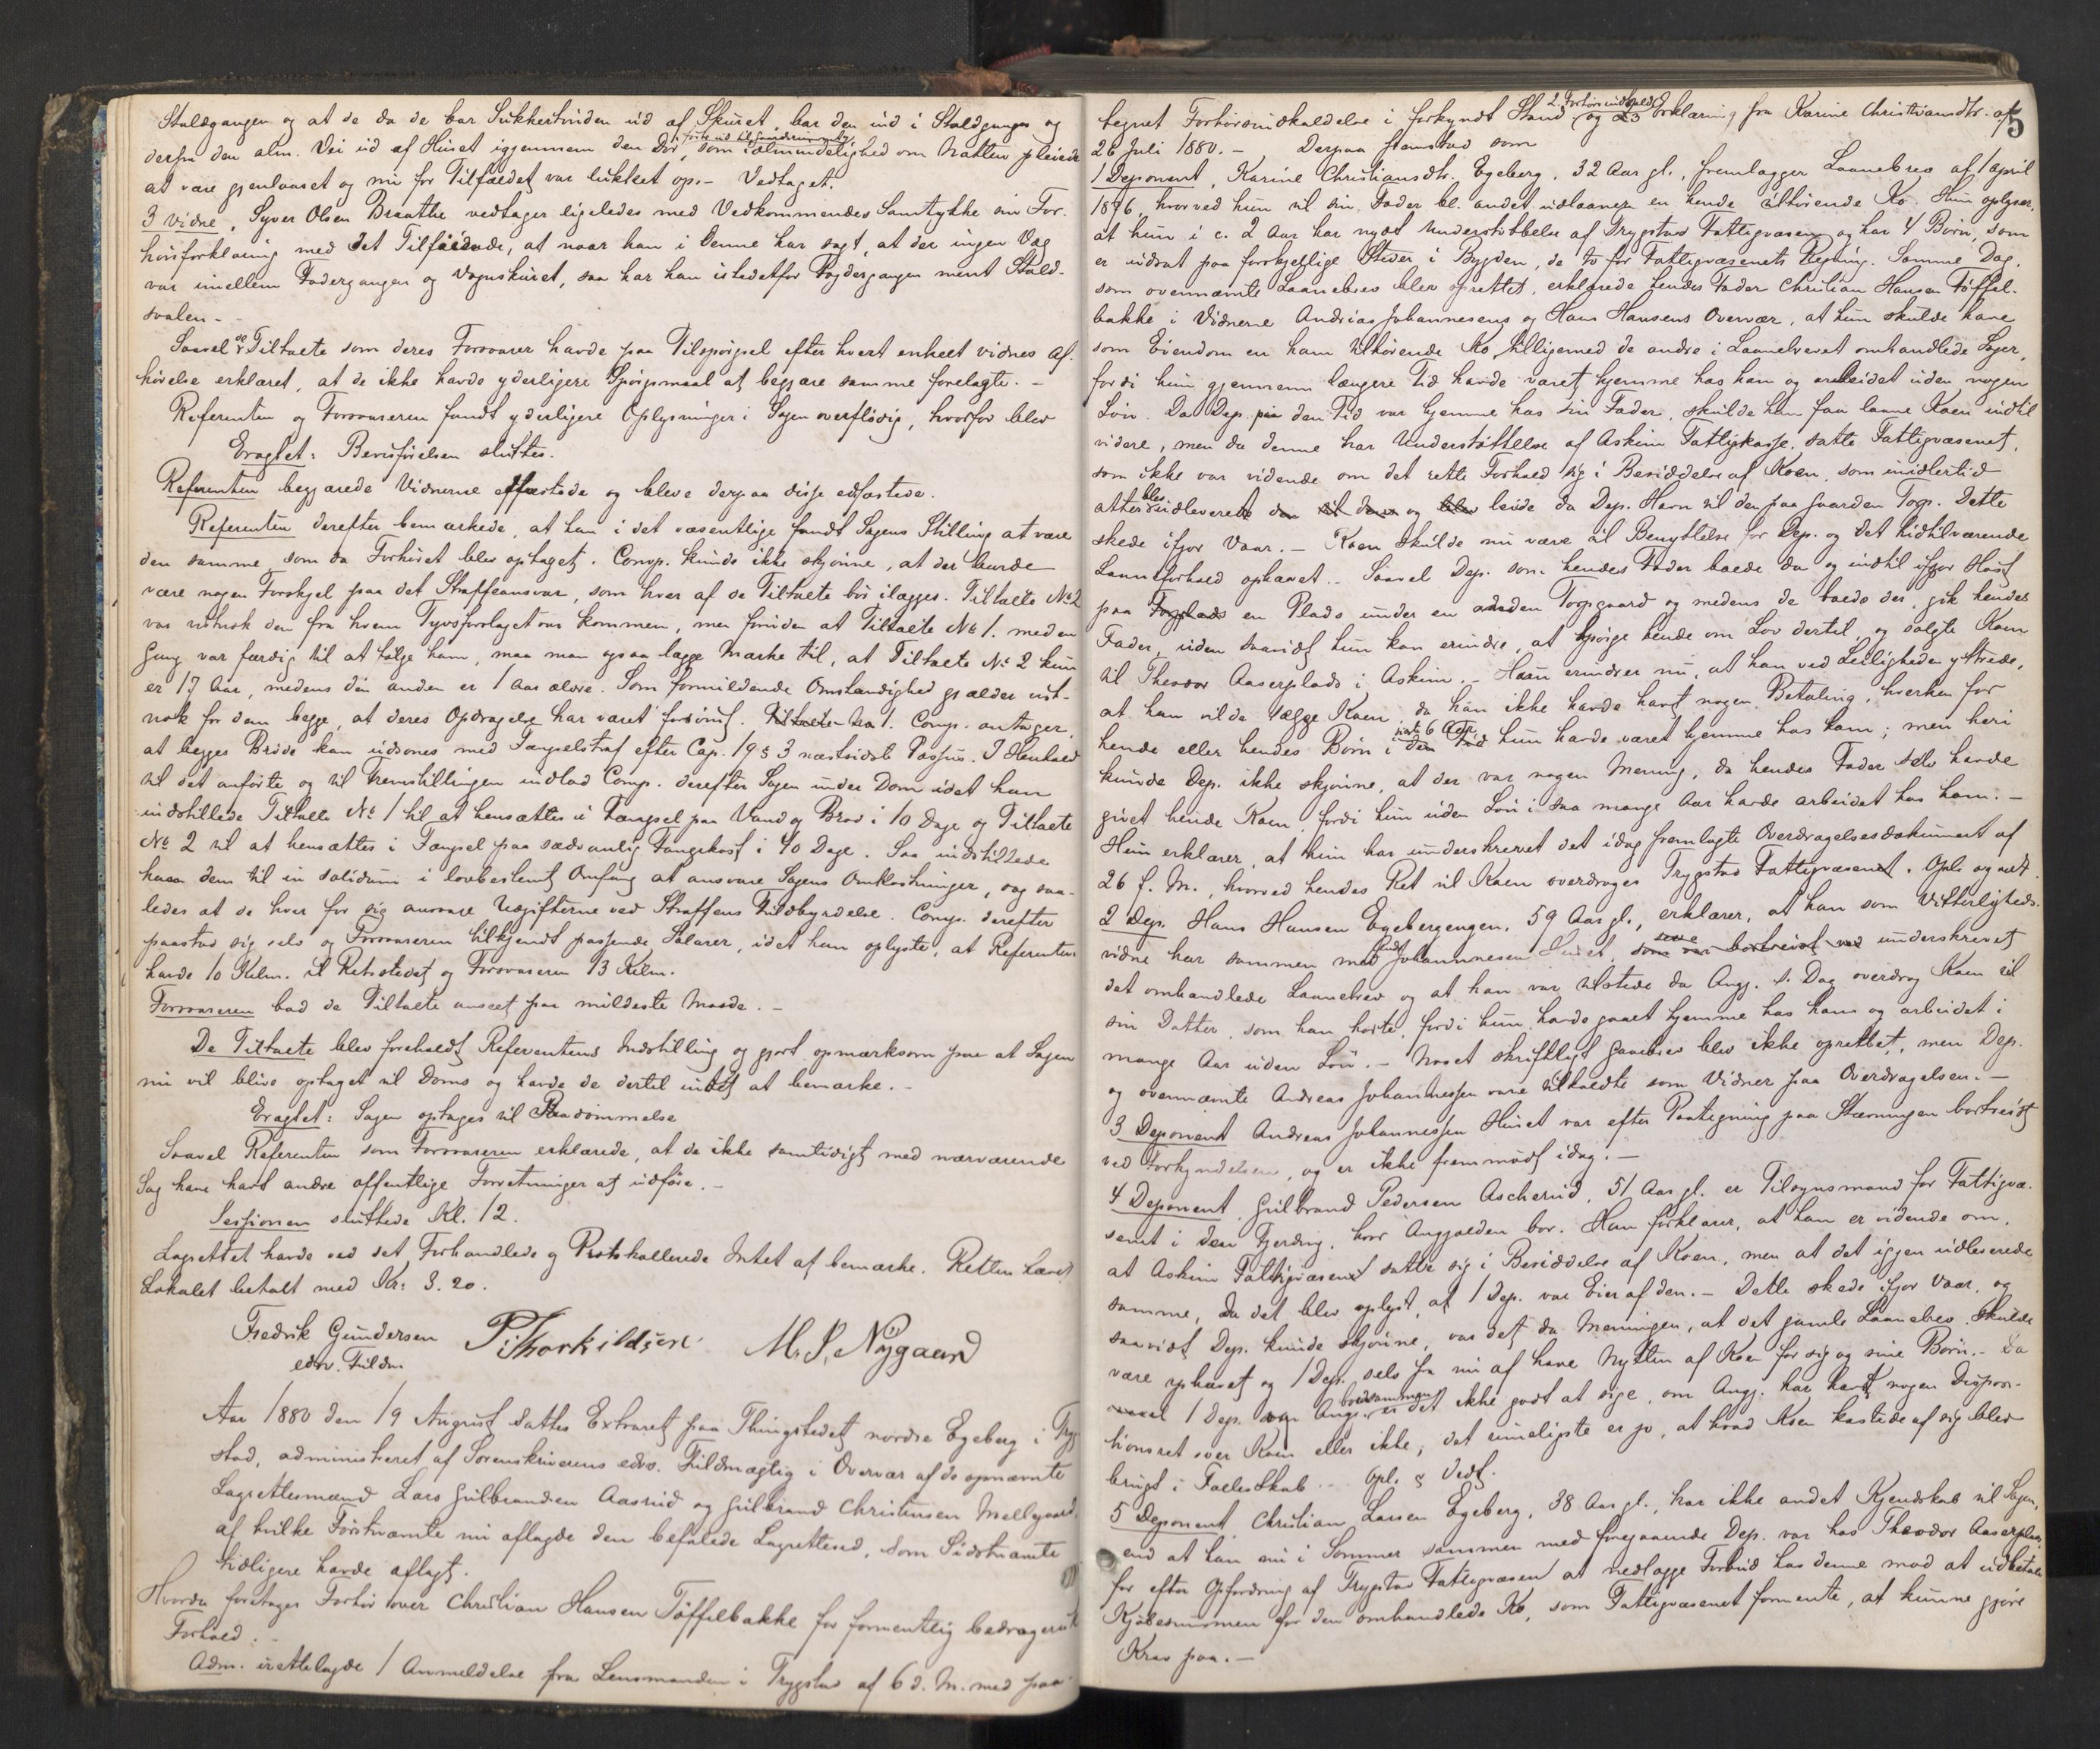 Staldgangen og at de da de bar Sukkertinden ud af Skuret, bar den ud i Staldgangen og
derfra den alm. Vei ud af Huset igjennem den Dör, som i almindelighed om Natten pleiede
at være gjenlaaset og nu for Tilfældet var lukket op. - Vedtaget.
3 Vidne, Syver Olsen Braathe vedtager ligeledes med Vedkommendes Samtykke sin For-
hörsforklaring med det Tilföiende, at naar han i denne har sagt, at der ingen Væg
var imellem Fodergangen og Vognskuret, saa har han istedetfor Fodergangen ment Stald-
svalen. -
Saavel de Tiltalte som deres Forsvarer havde paa Tilspörgsel efter hvert enkelt Vidnes Af-
hörelse erklæret, at de ikke havde yderligere Spörgsmaal at begjære samme forelagte. -
Referenten og Forsvareren fandt yderligere Oplysninger i Sagen overflödig, hvorfor blev
Eragtet: Bevisförelsen sluttes.
Referenten begjærede Vidnerne edfæstede og bleve derpaa disse edfæstede.
Referenten derefter bemærkede, at han i det væsentlige fandt Sagens Stilling at være
den samme, som da Forhöret blev optaget. Comp. kunde ikke skjönne, at der burde
være nogen Forskjel paa det Straffeansvar, som hver af de Tiltalte bör ilægges. Tiltalte No 2
var vistnok den fra hvem Tyvsforslaget var kommen, men foruden at Tiltalte No 1. med en
Gang var færdig til at fölge ham, maa man ogsaa lægge Mærke til, at Tiltalte No 2 kun
er 17 Aar, medens den anden er 1 Aar ældre. Som formildende Omstændighed gjælder vist-
nok for dem begge, at deres Opdragelse har været forsömt. Comp. antager,
at begges Bröde kan udsones med Fængselstraf efter Cap. 19 § 3 næstsidste Passus. I Henhold
til det anförte og til Fremstillingen indlod Comp. derefter Sagen under Dom idet han
indstillede Tiltalte No 1 til at hensættes i Fængsel paa Vand og Bröd i 10 Dage og Tiltalte
No 2 til at hensættes i Fængsel paa sædvanlig Fangekost i 40 Dage. Saa indstillede
han dem til in solidum i lovbestemt Omfang at ansvare Sagens Omkostninger, og saa-
ledes at de hver for sig ansvare Udgifterne ved Straffens Fuldbyrdelse. Comp. derefter
paastod sig selv og Forsvareren tilkjendt passende Salarer, idet han oplyste, at Referenten
havde 10 Kilm. til Retsstedet og Forsvareren 13 Kilm.
Forsvareren bad de Tiltalte anseet paa mildeste Maade. -
De Tiltalte blev foreholdt Referentens Indstilling og gjort opmærksom paa at Sagen
nu vil blive optaget til Doms og havde de dertil intet at bemærke. -
Eragtet: Sagen optages til Paadömmelse
Saavel Referenten som Forsvareren erklærede, at de ikke samtidigt med nærværende
Sag have havt andre offentlige Forretninger at udföre. -
Sessionen sluttede Kl. 12.
Lagrettet havde ved det Forhandlede og Protokollerede Intet at bemærke. Retten hævet
Lokalet betalt med Kr: 3.20.
Fredrik Gundersen P. Thorkildsen M. S. Nygaard
edsv. Fuldm.
Aar 1880 den 19 August sattes Extraret paa Thingstedet nordre Egeberg i Tryg-
stad, administreret af Sorenskriverens edsv. Fuldmægtig i Overvær af de opnævnte
Lagrettesmænd Lars Gulbrandsen Aasrud og Gulbrand Christensen Mellegaard,
af hvilke Förstnævnte nu aflagde den befalede Lagretteed, som Sidstnævnte
tidligere havde aflagt.
Hvorda foretages Forhör over Christian Hansen Töffelbakke for formentlig bedragersk
Forhold. -
Adm. irettelagde 1 Anmeldelse fra Lensmanden i Trygstad af 6 d. M. med paa-
5
tegnet Forhörsindkaldelse i forkyndt Stand, og Erklæring fra Karine Christiansdtr. af
26 Juli 1880. - Derpaa fremstod som
1 Deponent, Karine Christiansdtr. Egeberg, 32 Aar gl., fremlægger Laanebrev af 1 April
1876, hvorved hun til sin Fader bl. andet udlaaner en hende tilhörende Ko. Hun oplyser,
at hun i c. 2 Aar har nydt Understöttelse af Trygstad Fattigvæsen og har 4 Börn, som
er indsat paa forskjellige Steder i Bygden, de to for Fattigvæsenets Regning. Samme Dag,
som ovennævnte Laanebrev blev oprettet, erklærede hendes Fader Christian Hansen Töffel-
bakke i Vidnerne Andreas Johannesens og Hans Hansens Overvær, at hun skulde have
som Eiendom en ham tilhörende Ko tilligemed de andre i Laanebrevet omhandlede Sager,
fordi hun gjennem længere Tid havde været hjemme hos ham og arbeidet uden nogen
Lön. Da Dep. paa den Tid var hjemme hos sin Fader, skulde han faa laane Koen indtil
videre, men da denne har Understöttelse af Askim Fattigkasse, satte Fattigvæsenet,
som ikke var vidende om det rette Forhold sig i Besiddelse af Koen, som imidlertid
atter blev udleveret og leide da Dep. Havn til den paa Gaarden Torp. Dette
skede ifjor Vaar. - Koen skulde nu være til Benyttelse for Dep. og det hidtilværende
Laaneforhold ophævet. - Saavel Dep. som hendes Fader boede da og indtil ifjor Höst
paa en Plads under en anden Torpgaard og medens de boede der, gik hendes
Fader, uden saavidt hun kan erindre, at spörge hende om Lov dertil, og solgte Koen
til Theodor Aaserplads i Askim. - Hun erindrer nu, at han ved Leiligheden yttrede,
at han vilde sælge Koen, da han ikke havde havt nogen Betaling, hverken for
hende eller hendes Börn i de 6 Aar, hun havde været hjemme hos ham; men heri
kunde Dep. ikke skjönne, at der var nogen Mening, da hendes Fader selv havde
givet hende Koen, fordi hun uden Lön i saa mange Aar havde arbeidet hos ham. -
Hun erklærer, at hun har underskrevet det idag fremlagte Overdragelsesdokument af
26 f. M., hvorved hendes Ret til Koen overdrages Trygstad Fattigvæsenet. Opl. og vedt.
2 Dep. Hans Hansen Egebergengen, 59 Aar gl., erklærer, at han som Vitterligheds-
vidne har sammen med Johannesen Huset, underskrevet
det omhandlede Laanebrev og at han var tilstede da Ang. s. Dag overdrog Koen til
sin Datter, som han hörte, fordi hun havde gaaet hjemme hos ham og arbeidet i
mange Aar uden Lön. - Noget skriftligt Gavebrev blev ikke oprettet, men Dep.
og ovennævnte Andreas Johannessen vare tilkaldte som Vidner paa Overdragelsen. -
3 Deponent Andreas Johannessen Huset var efter Paategning paa Stævningen bortreist
ved Forkyndelsen, og er ikke fremmödt idag. -
4 Deponent, Gulbrand Pedersen Ascherud, 51 Aar gl. er Tilsynsmand for Fattigvæ-
senet i den Fjerding, hvor Angjældende bor. Han forklarer, at han er vidende om,
at Askim Fattigvæsen satte sig i Besiddelse af Koen, men at det igjen udleverede
samme, da det blev oplyst, at 1 Dep. var Eier af den. - Dette skede ifjor Vaar, og
saavidt Dep. kunde skjönne, var det da Meningen, at det gamle Laanebrev skulde
være ophævet og 1 Dep. selv fra nu af have Nytten af Koen for sig og sine Börn. - Da
1 Dep. og Ang. bor sammen er det ikke godt at sige, om Ang. har havt nogen Disposi-
tionsret over Koen eller ikke; det rimeligste er jo, at hvad Koen kastede af sig blev
brugt i Fællesskab. - Opl. & Vedt.
5 Deponent, Christian Larsen Egeberg, 38 Aar gl., har ikke andet Kjendskab til Sagen,
end at han nu i Sommer sammen med foregaaende Dep. var hos Theodor Aaserplads
for efter Opfordring af Trygstad Fattigvæsen at nedlægge Forbud hos denne mod at udbetale
Kjöbesummen for den omhandlede Ko, som Fattigvæsenet formente, at kunne gjöre
Krav paa. -